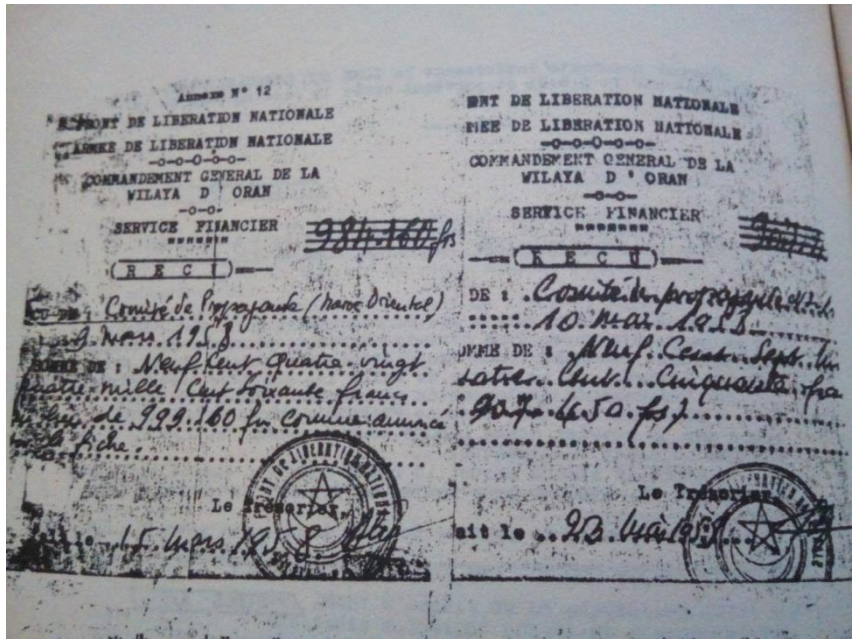 Annexe N° 12
FRONT DE LIBERATION NATIONALE
ARMEE DE LIBERATION NATIONALE
-o-o-O-o-o-
COMMANDEMENT GENERAL DE LA
WILAYA D ORAN
-o-o-
SERVICE FINANCIER
984.160 frs
( R E C U )
Comité de Propagande (Maroc Oriental)
9 Mars 1958
SOMME DE : Neuf Cent quatre vingt
quatre mille Cent soixante francs
lieu de 999.160 frs comme annoncé
la fiche.
Le Trésorier,
15 Mars 1958.
FRONT DE LIBERATION NATIONALE
ONT DE LIBERATION NATIONALE
MEE DE LIBERATION NATIONALE
-o-o-O-o-o-
COMMANDEMENT GENERAL DE LA
WILAYA D ' ORAN
-o-o-
SERVICE FINANCIER
( R E C U )
DE : Comité de propagande
10 Mai 1958.
OMME DE : Neuf Cent Sept
Cent Cinquante
907.450 frs)
Le Trésorier,
ait le 23 Mai 195